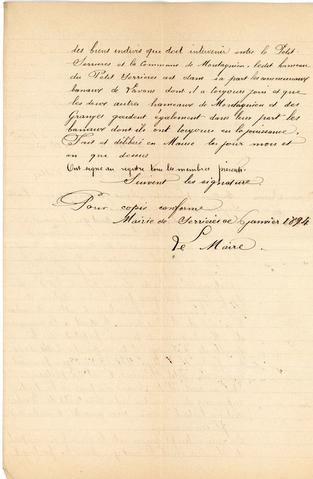 des biens indivis que doit intervenir entre le Petit
Serrieres et la Commune de Montagnieu, ledit hameau
du Petit Serrières ait dans sa part les communaux
banaux de Varons dont il a toujours joui et que
les deux autres hameaux de Montagnieu et des
Granges gardent également dans leur part les
banaux dont ils ont toujours eu la jouissance,
Fait et délibéré en Mairie les jour mois et
an que dessus
Ont signé au registre tous les membres présents
Suivent les signature
Pour copie conforme
Mairie de Serrières le 6 janvier 1894
Le Maire